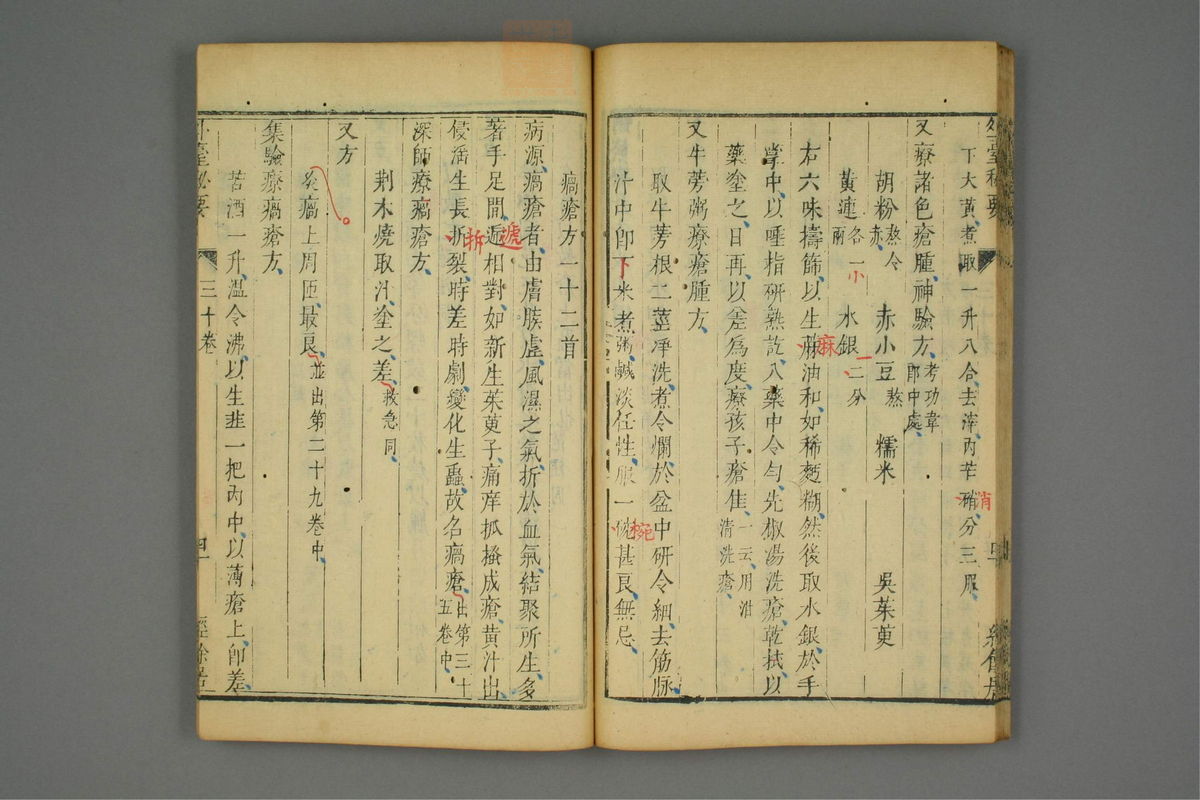 外臺秘要
下大黃煮取一升八合去滓內芒硝分三服
消
又療諸色瘡腫神驗方考功韋郎中處
胡粉熬令赤 赤小豆熬 糯米 吳茱萸
黃連各一兩 水銀二分
小
一
右六味擣篩以生麻油和如稀麫糊然後取水銀於手
麻
掌中以唾指研熟訖入藥中令勻先椒湯洗瘡乾拭以
藥塗之日再以差為度療孩子瘡佳一云用泔清洗瘡
又牛蒡粥療瘡腫方
取牛蒡根二莖淨洗煮令爛於盆中研令細去筋脉
汁中即下米煮粥鹹淡任性服一惋甚良無忌
下
椀
瘑瘡方一十二首
病源瘑瘡者由膚腠虛風濕之氣折於血氣結聚所生多
著手足間遞相對如新生茱萸子痛痒抓搔成瘡黃汁出
遞
侵淫生長折裂時差時劇變化生蟲故名瘑瘡出第三十五卷中
拆
深師療瘑瘡方
荆木燒取汁塗之差救急同
又方
灸瘑上周匝最良並出第二十九卷中
集驗療瘑瘡方
苦酒一升溫令沸以生韭一把內中以薄瘡上即差
外臺秘要
三十卷
四一
經餘居